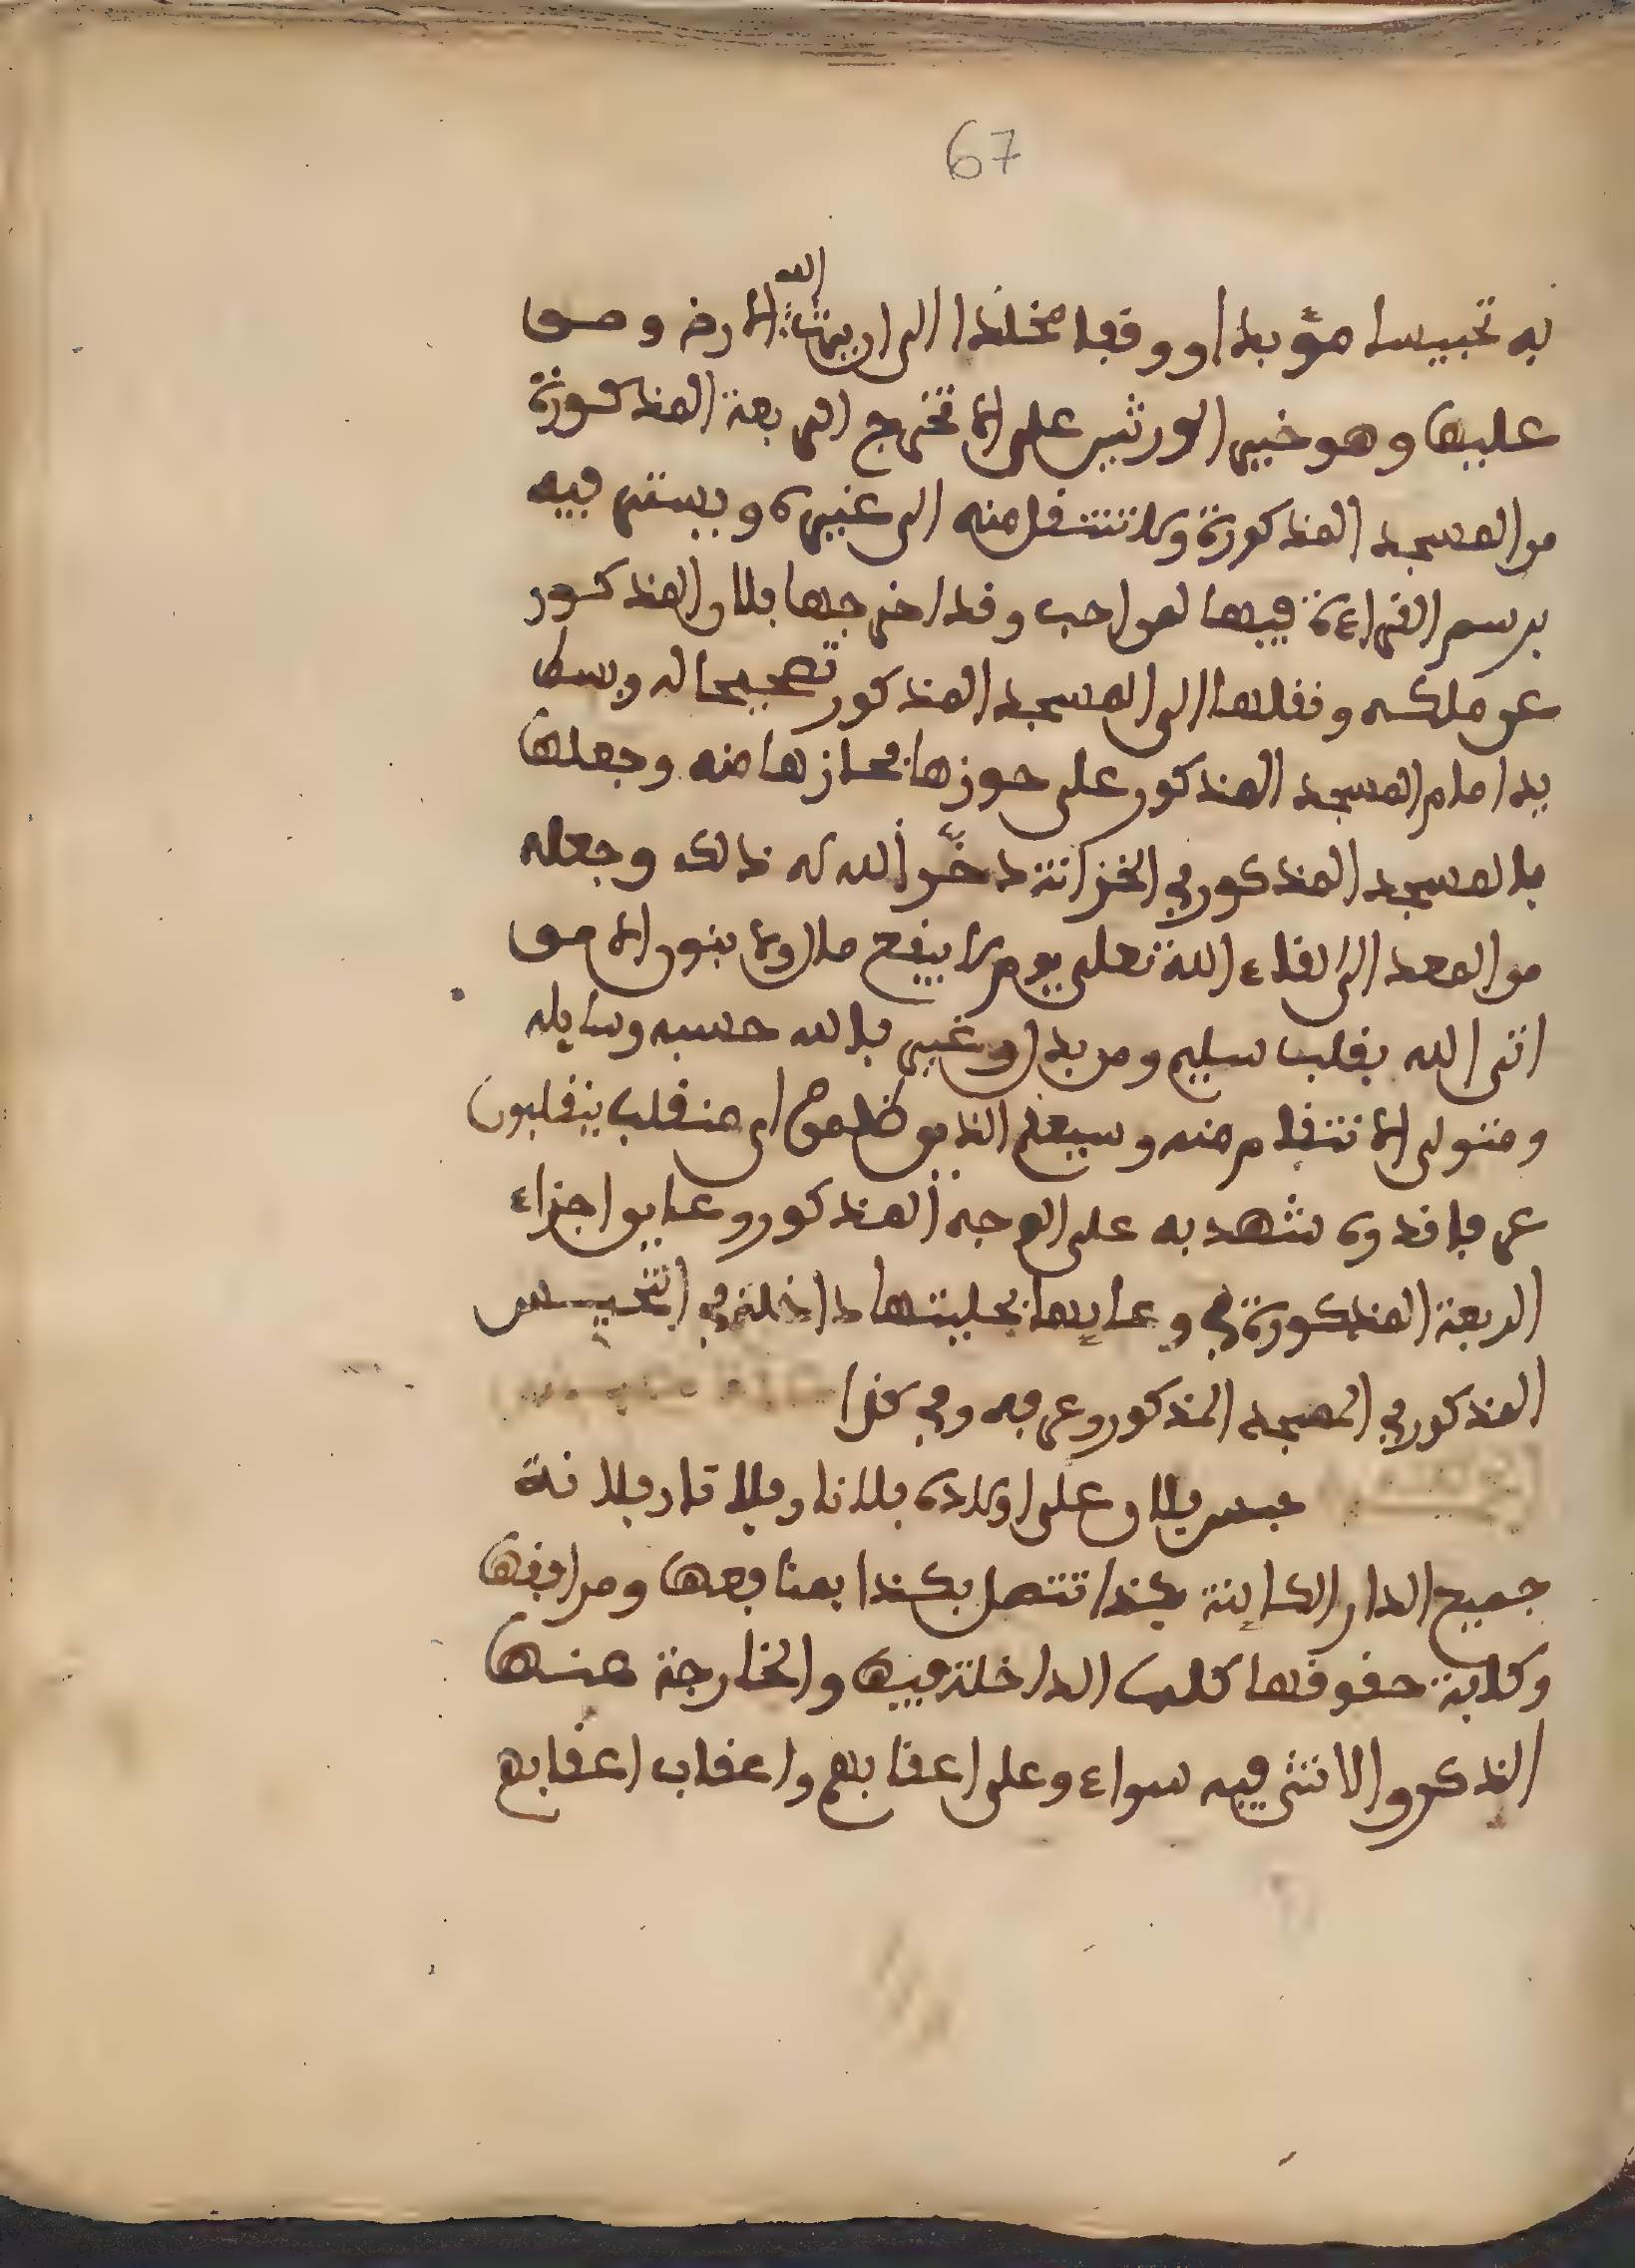 67
به تحبيسا مؤبدا ووقفا مخلدا الى ان يرث الله الارض ومن
عليها وهو خير الورثين على الا تخرج الربعة المذكورة
من المسجد المذكورة ولا تنتقل منه الى غيره ويستقر فيه
برسم القراءة فيها لمن احب وقد اخرجها فلان المذكور
عن ملكه ونقلها الى المسجد المذكور تصحيحا له وبسط
يد امام المسجد المذكور على حوزها فحازها منه وجعلها
بالمسجد المذكور في الخزانة ذخر الله له ذلك وجعله
من المعد الى لقاء الله تعلى يوم لا ينفع مال ولا بنون الا من
اتى الله بقلب سليم ومن بدل وغير فالله حسبه وسايله
ومتولى الانتقام منه وسيعلم الذين ظلموا اى منقلب ينقلبون
عرفا قدره شهد به على الوجه المذكور وعاين اجزاء
الربعة المذكورة في وعايها بحليتها داخلة في التحبيس
المذكور في المسجد المذكور وعرفه وفي كذا
حبس فلان على اولاده فلانا وفلانا وفلانة
جميع الدار الكاينة بكذا تتصل بكذا بمنافعها ومرافقها
وكافة حقوقها كلها الداخلة فيها والخارجة عنها
الذكر والانثى فيه سواء وعلى اعقابهم واعقاب اعقابهم